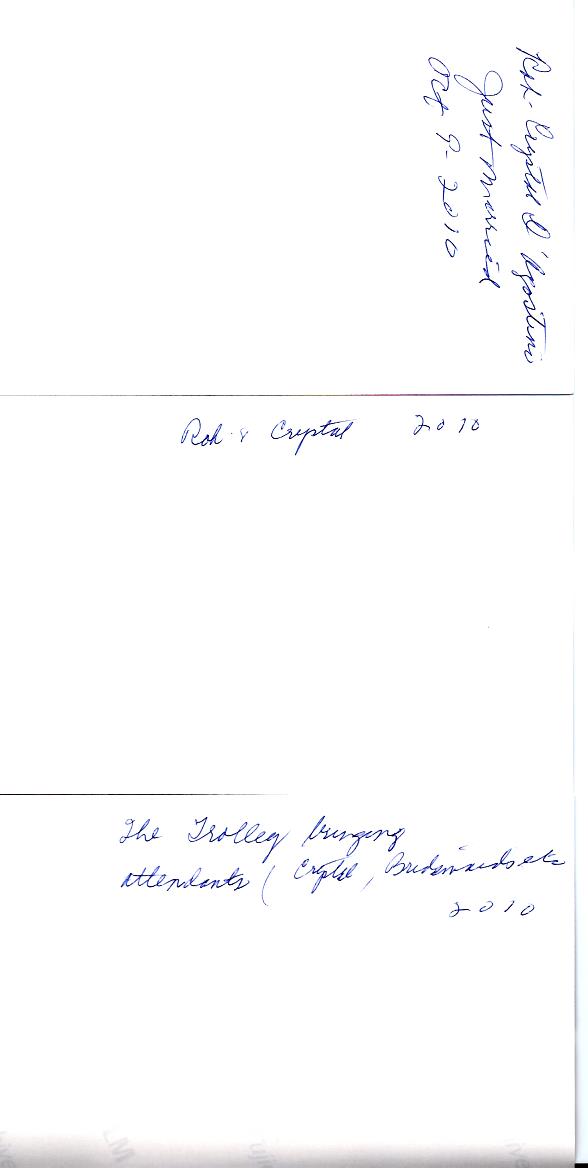 Rob - Crystal D'Agostino
Just Married
Oct 9 - 2010
Rob & Crystal 2010
The Trolley bringing
attendants ( Crystal, Bridesmaids etc
2010